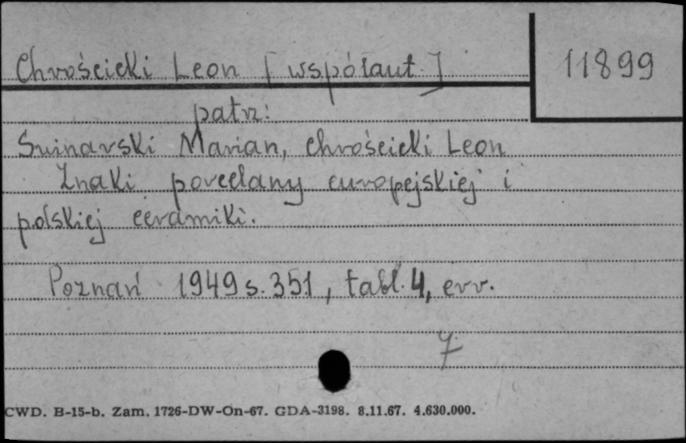 Chrościcki Leon [współaut.]
11899
patrz:
Swinarski Marian, Chrościcki Leon
Znaki porcelany europejskiej i
polskiej ceramiki.
Poznań 1949 s. 351, tabl. 4, err.
7
CWD. B-15-b. Zam. 1726-DW-On-67. GDA-3198. 8.11.67. 4.630.000.